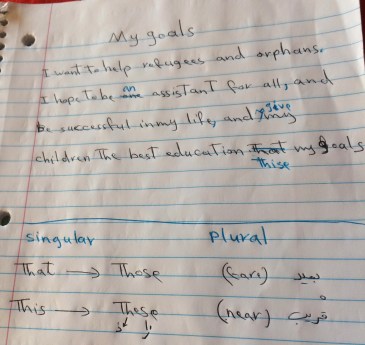 My goals
I want to help refugees and orphans.
I hope to be an assistant for all, and
be successful in my life, and give my
children The best education That my goals
Thise
singular plural
That → Those (far) بعيد
This → These (near) قريب